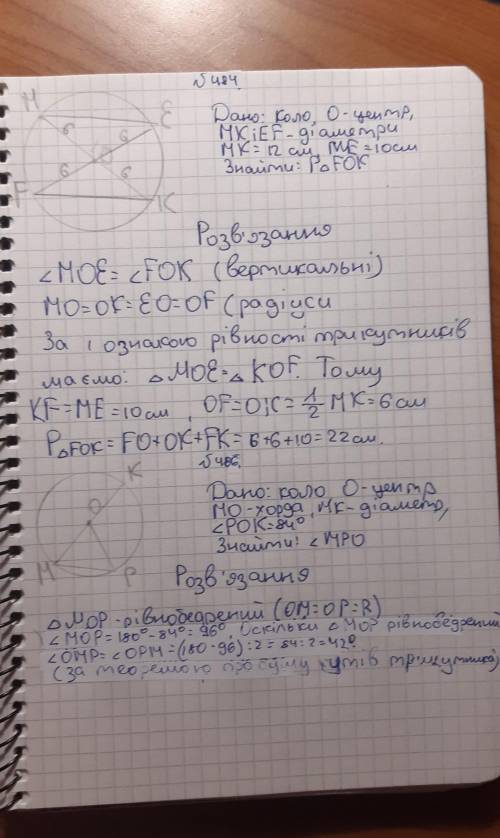 №484.
M
E
6
6
O
6
6
F
K
Дано: коло, О-центр,
МК і EF-діаметри
МК=12 см, МЕ=10см
Знайти: P△FOK
Розв'язання
∠MOE=∠FOK (вертикальні)
MO=OK=EO=OF (радіуси
За 1 ознакою рівності трикутників
маємо: △MOE=△KOF. Тому
KF=ME=10см, OF=OK=1/2 MK=6см
P△FOK=FO+OK+FK=6+6+10=22см.
№486.
K
O
M
P
Дано: коло, О-центр
МО-хорда, МК-діаметр,
∠POK=84°
Знайти: ∠MPO
Розв'язання
△MOP-рівнобедрений (OM=OP=R)
∠MOP=180°-84°=96°, Оскільки △MOP рівнобедрений
∠OMP=∠OPM=(180-96):2=84:2=42°
(за теоремою про суму кутів трикутника)